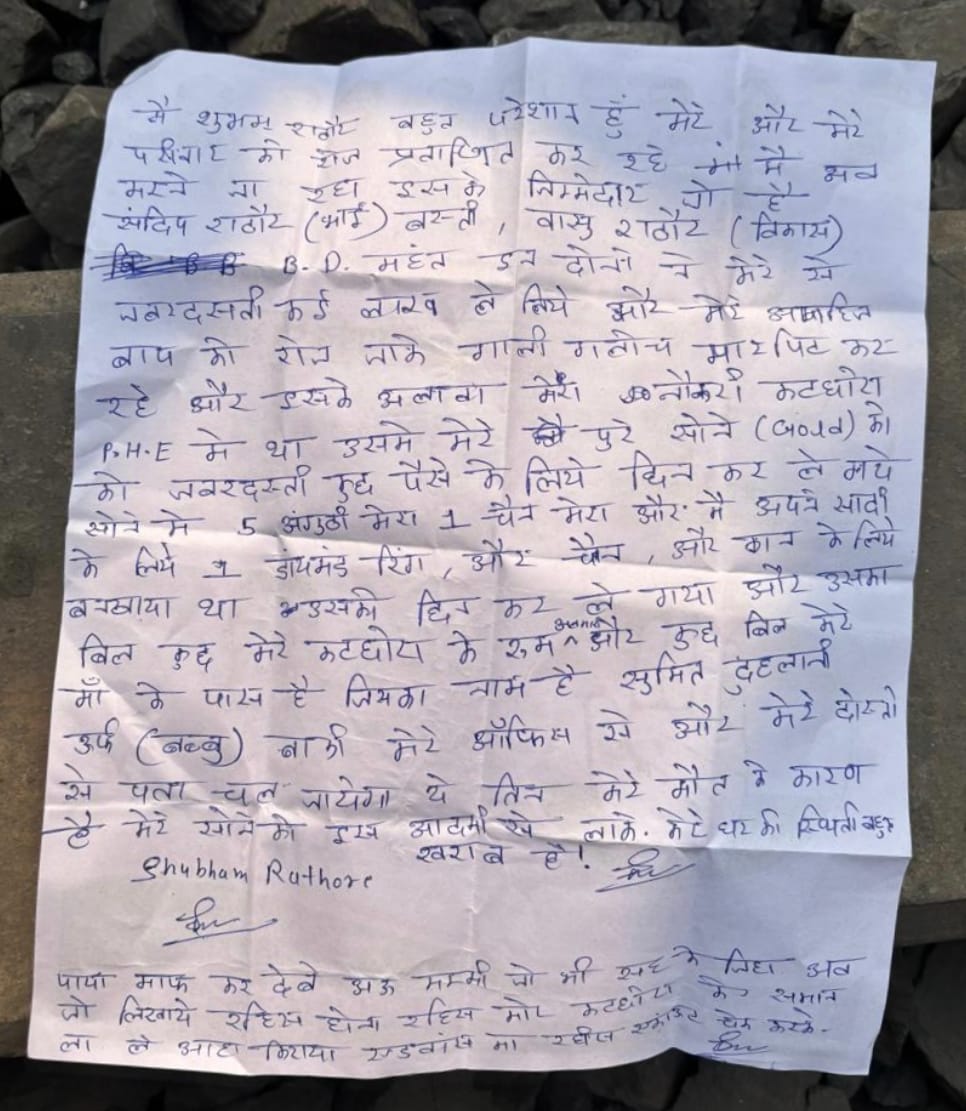 मै शुभम राठौर बहुत परेशान हुं मेरे और मेरे
परिवार को रोज प्रताणित कर रहे मां मै अब
मरने जा रहा इसके जिम्मेदार जो है
संदिप राठौर (भाई) बस्ती, वासु राठौर (विकास)
B.D. महंत इन दोनो ने मेरे से
जबरदसती कई लाख ले लिये और मेरे
बाप को रोज जाके गाली गलोच मारपिट कर
रहे और इसके अलावा मेरा नौकरी कटघोरा
P.H.E मे था उसमे मेरे पुरे सोने (Gold) को
को जबरदस्ती कुछ पैसे के लिये छिन कर ले गये
सोने मे 5 अंगुठी मेरा 1 चैन मेरा और मै अपने सादी
के लिये 1 डांयमंड रिंग, और चैन, और कान के लिये
बनवाया था उसको छिन कर ले गया और उसका
बिल कुछ मेरे कटघोरा के रुम और कुछ बिल मेरे
माँ के पास है जिसका नाम है सुमित दुहलानी
उर्फ (बब्बु) बाकी मेरे ऑफिस से और मेरे दोस्तो
से पता चल जायेगा ये तिन मेरे मौत के कारण
है मेरे सोने को इस आदमी से लाके. मेरे घर की स्थिती बहुत
खराब है!
Shubham Rathore
पापा माफ कर देबे अऊ मम्मी जो भी अब
जो लिखाये रहिस होना रहिस मोर कटघोरा के समान
ला ले आहा किराया मा चेक करके.